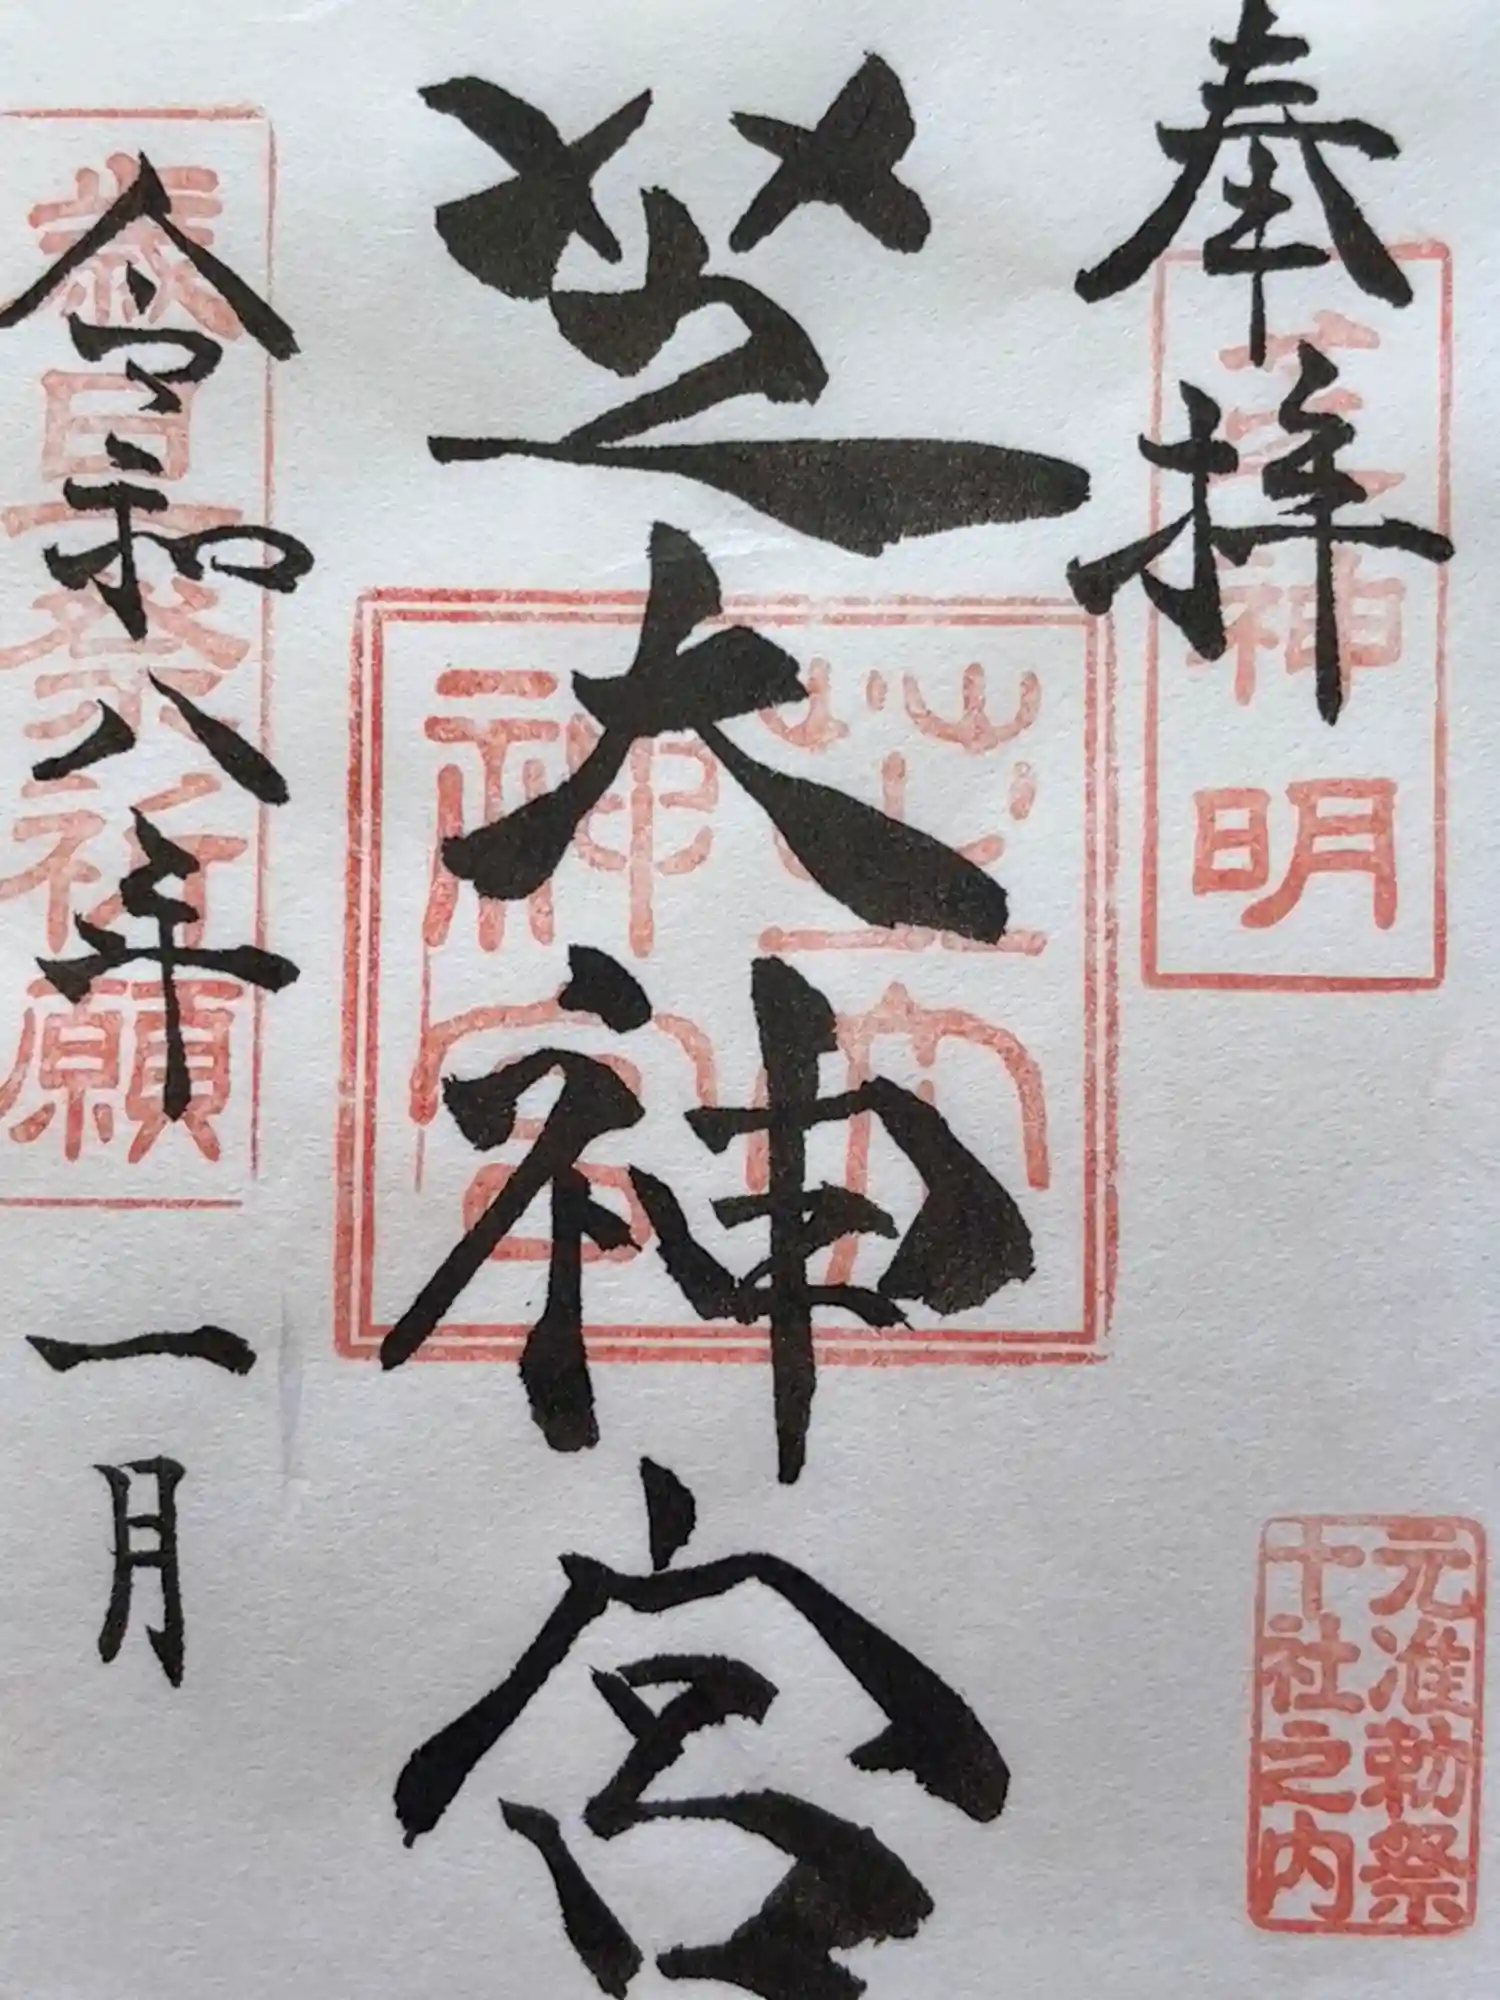 奉拝
芝神明
元准勅祭
十社之内
芝大神宮
芝大
神宮
令和八年一月
歳旦祭祈願